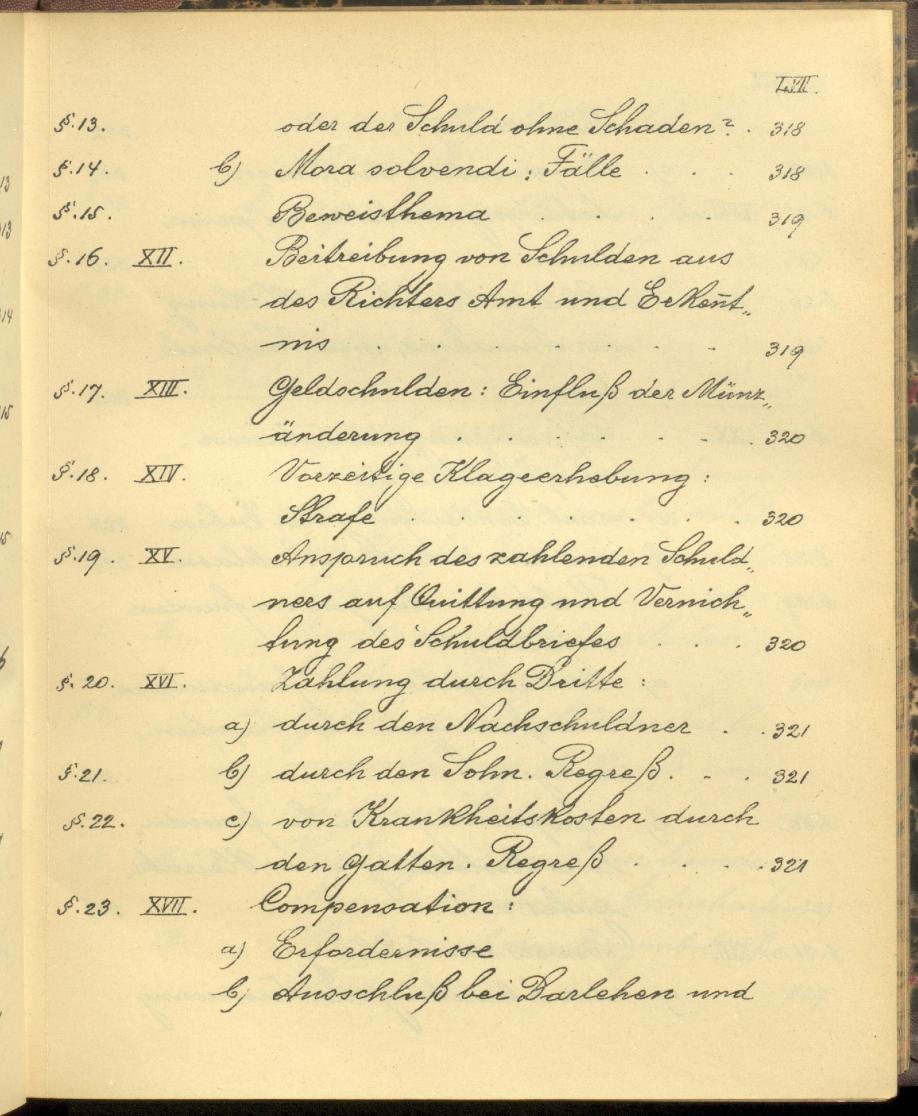 LVII.
§.13. oder der Schuld ohne Schaden? . 318
§.14. b) Mora solvendi: Fälle . . . 318
§.15. Beweisthema . . . 319
§.16. XII. Beitreibung von Schulden aus
des Richters Amt und Erkent̄„
nis . . . 319
§.17. XIII. Geldschulden: Einfluß der Münz„
änderung . . . . . . 320
§.18. XIV. Vorzeitige Klageerhebung:
Strafe . . . . 320
§.19. XV. Anspruch des zahlenden Schuld„
ners auf Quittung und Vernich„
tung des Schuldbriefes . . . 320
§.20. XVI. Zahlung durch Dritte:
a) durch den Nachschuldner . . 321
§.21. b) durch den Sohn. Regreß . . . 321
§.22. c) von Krankheitskosten durch
den Gatten. Regreß . . . . 321
§.23. XVII. Compensation:
a) Erfordernisse
b) Ausschluß bei Darlehen und